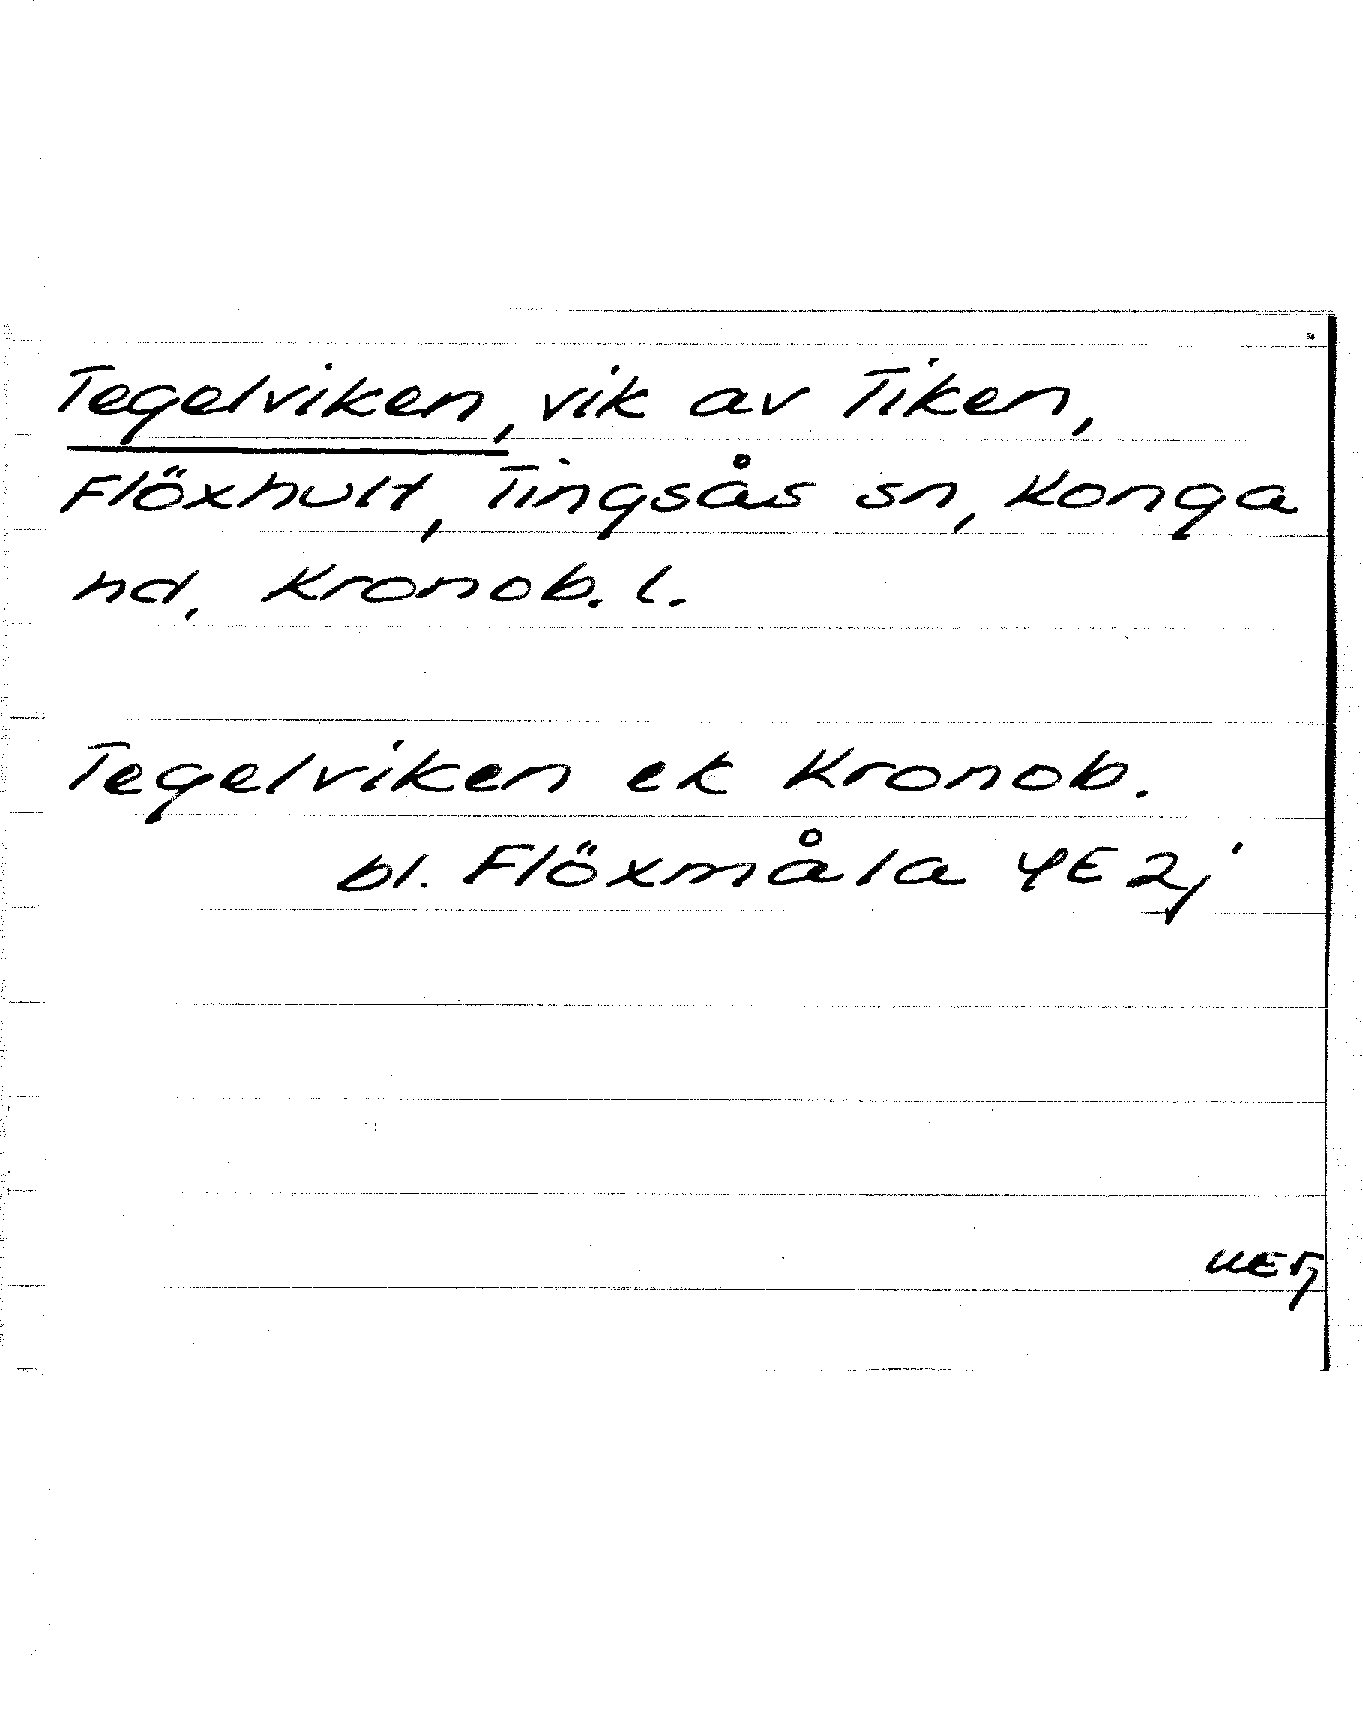 Tegelviken, vik av Tiken,
Flöxhult, Tingsås sn, Konga
hd, Kronob. l.
Tegelviken ek Kronob.
bl. Flöxmåla 4E 2j